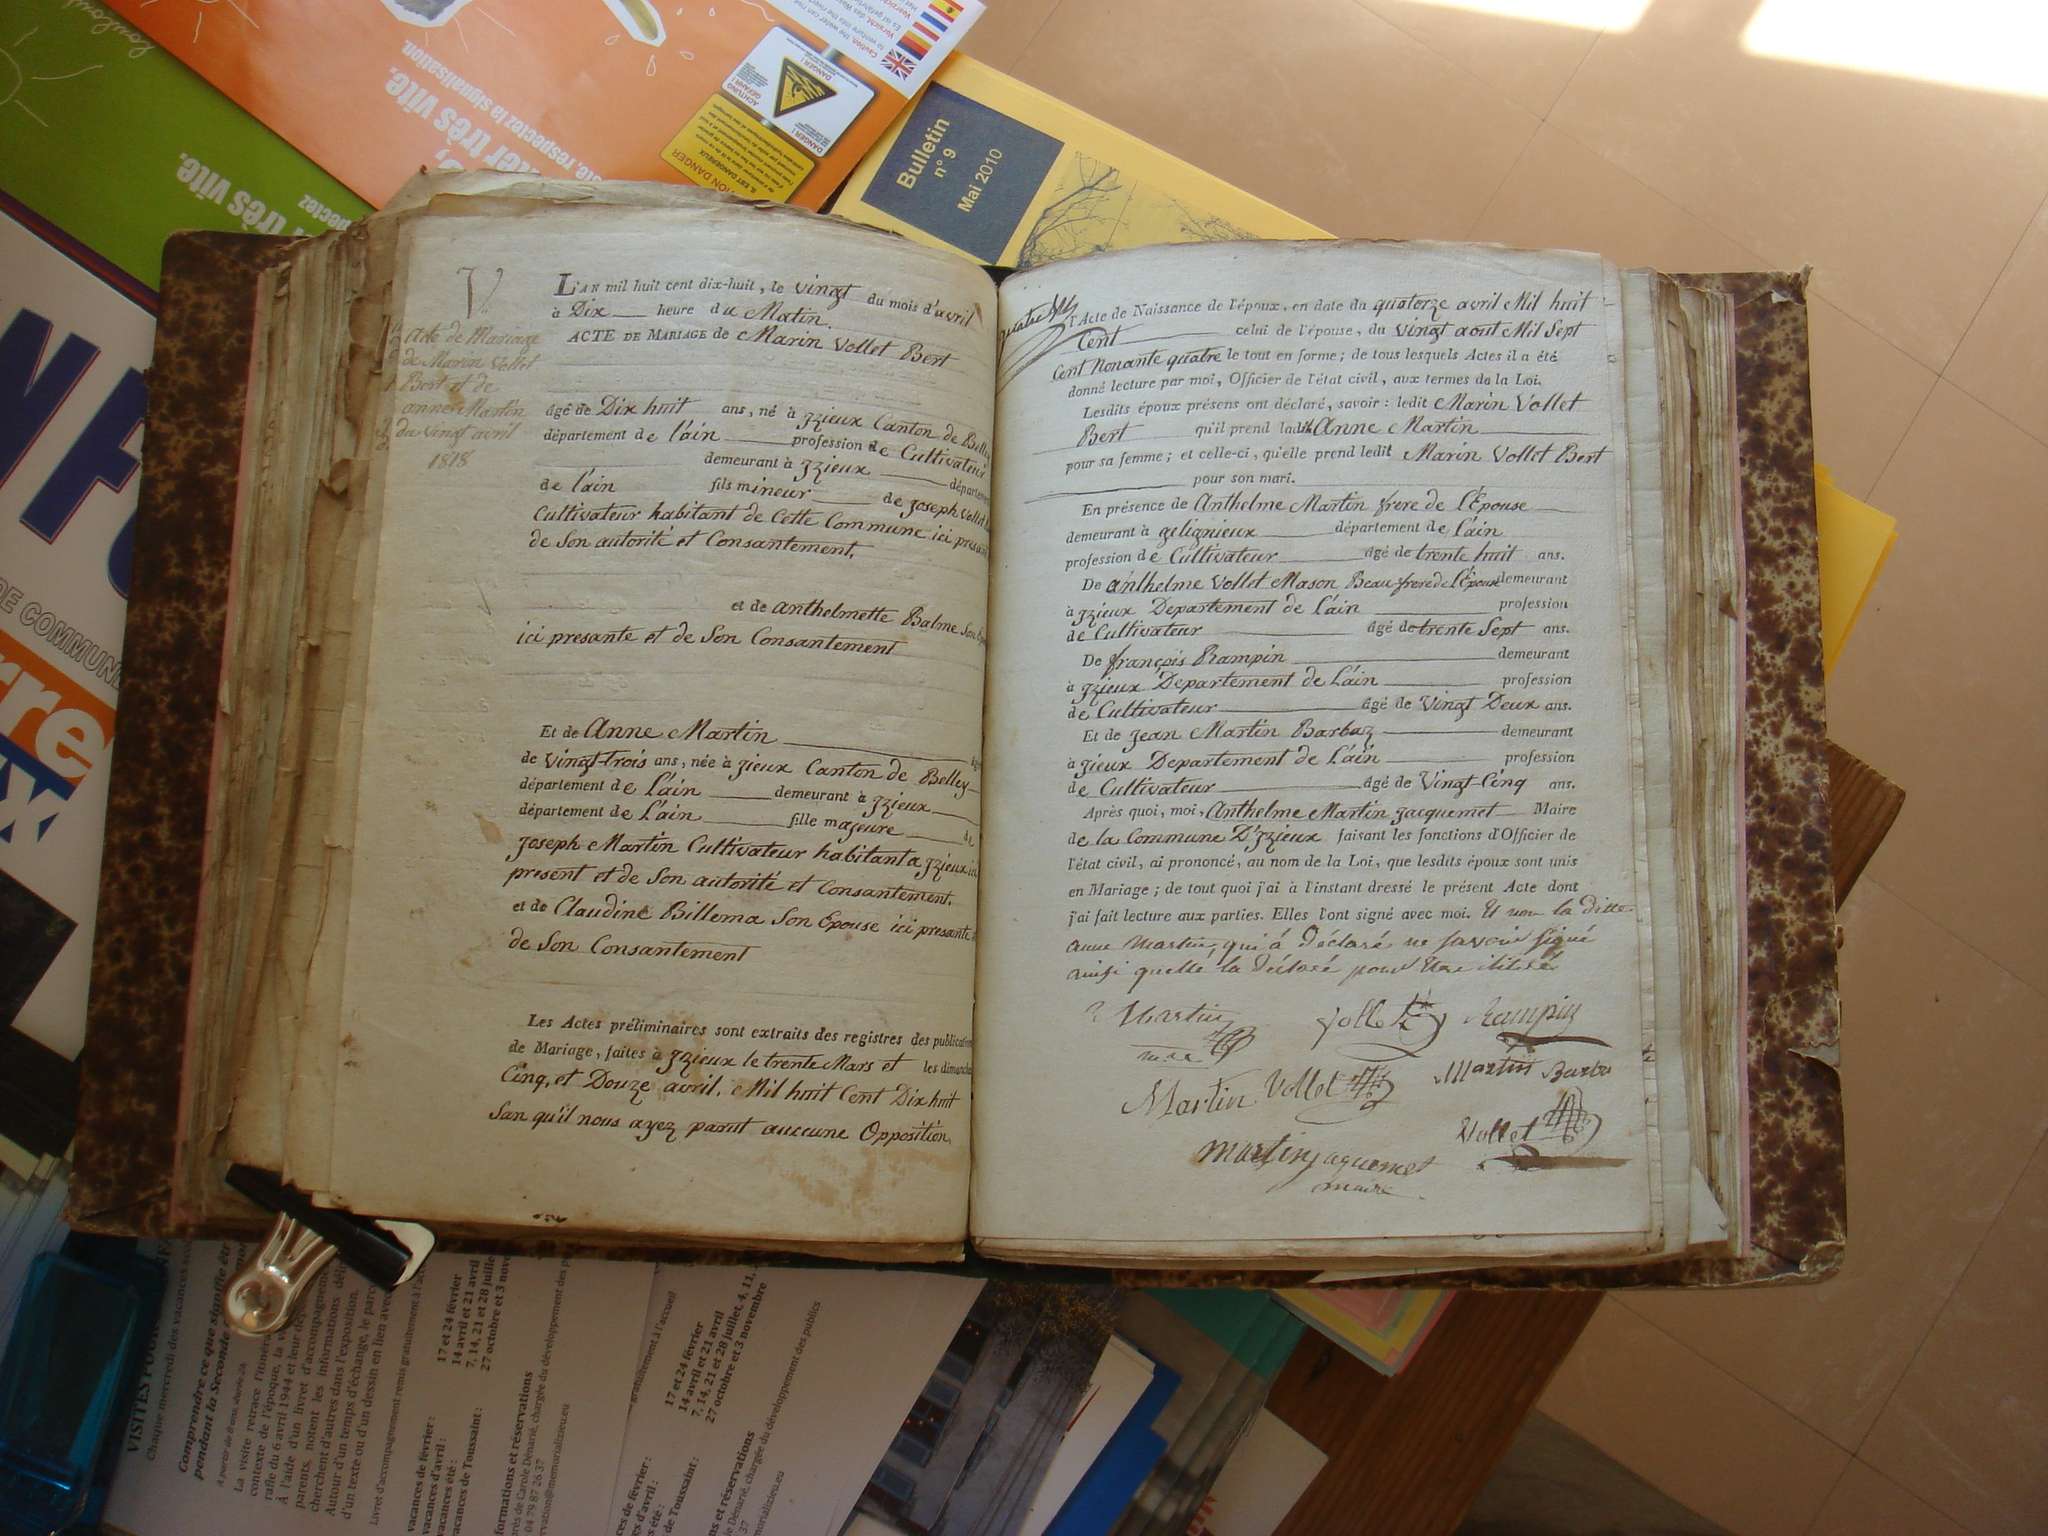 Bulletin
n° 9
Mai 2010
très vite,
respectez la signalisation.
très vite.
DANGER !
ACHTUNG
GEFAHR !
V.
Acte de Mariage
de Marin Vollet
Bert et de
anne Martin
du vingt avril
1818
L'AN mil huit cent dix-huit, le vingt du mois d'avril
à Dix heure du Matin.
ACTE DE MARIAGE de Marin Vollet Bert
âgé de Dix huit ans, né à jzieux Canton de Belley
département de l'ain profession de Cultivateur
demeurant à jzieux département
de l'ain fils mineur de joseph Vollet
Cultivateur habitant de Cette Commune ici present
de Son autorité et Consantement,
et de anthelmette Balme Son
ici presante et de Son Consantement
Et de Anne Martin âgée
de vingt-trois ans, née à jieux Canton de Belley
département de L'ain demeurant à jzieux
département de L'ain fille majeure de
joseph Martin Cultivateur habitant a jzieux ici
present et de Son autorité et Consantement,
et de Claudine Billema Son Epouse ici presante
de Son Consantement
Les Actes préliminaires sont extraits des registres des publications
de Mariage, faites à jzieux le trente Mars et les dimanches
Cinq, et Douze avril, Mil huit Cent Dix huit
San qu'il nous ayez parut auccune Opposition,
l'Acte de Naissance de l'époux, en date du quatorze avril Mil huit
Cent celui de l'épouse, du vingt aout Mil Sept
Cent Nonante quatre le tout en forme ; de tous lesquels Actes il a été
donné lecture par moi, Officier de l'état civil, aux termes de la Loi.
Lesdits époux présens ont déclaré, savoir : ledit Marin Vollet
Bert qu'il prend ladite Anne Martin
pour sa femme ; et celle-ci, qu'elle prend ledit Marin Vollet Bert
pour son mari.
En présence de Anthelme Martin frere de l'Épouse
demeurant à gelignieux département de l'ain
profession de Cultivateur âgé de trente huit ans.
De anthelme Vollet Mason Beau frere de l'Époux demeurant
à jzieux Departement de l'ain profession
de Cultivateur âgé de trente Sept ans.
De françois Rampin demeurant
à jzieux Departement de L'ain profession
de Cultivateur âgé de Vingt Deux ans.
Et de jean Martin Barbaz demeurant
à jzieux Departement de L'ain profession
de Cultivateur âgé de Vingt-Cinq ans.
Après quoi, moi, Anthelme Martin jacquemet Maire
de la Commune D'jzieux faisant les fonctions d'Officier de
l'état civil, ai prononcé, au nom de la Loi, que lesdits époux sont unis
en Mariage ; de tout quoi j'ai à l'instant dressé le présent Acte dont
j'ai fait lecture aux parties. Elles l'ont signé avec moi. Et non la ditte
anne Martin, qui á Déclaré ne savoir signé
Martin Vollet Rampin
Martin Vollet Martin Barba
Vollet
Martin jaquemet
maire
VISITES POUR
Chaque mercredi des vacances
Comprendre ce que signifie
pendant la Seconde
La visite retrace
contexte de l'époque, la
rafle du 6 avril 1944 et leur
À l'aide d'un livret d'accompagnement
parents, notent les informations
cherchent d'autres dans l'exposition.
Autour d'un temps d'échange, le
d'un texte ou d'un dessin en lien avec
vacances de février :
vacances d'avril :
vacances d'été :
vacances de Toussaint :
17 et 24 février
14 avril et 21 avril
7, 14, 21 et 28 juillet
27 octobre et 3
et réservations
de Carole Dénarié, chargée du développement des
04 79 87 26 37
17 et 24 février
14 avril et 21 avril
7, 14, 21 et 28 juillet, 4, 11,
27 octobre et 3 novembre
et réservations
Dénarié, chargée du développement des publics